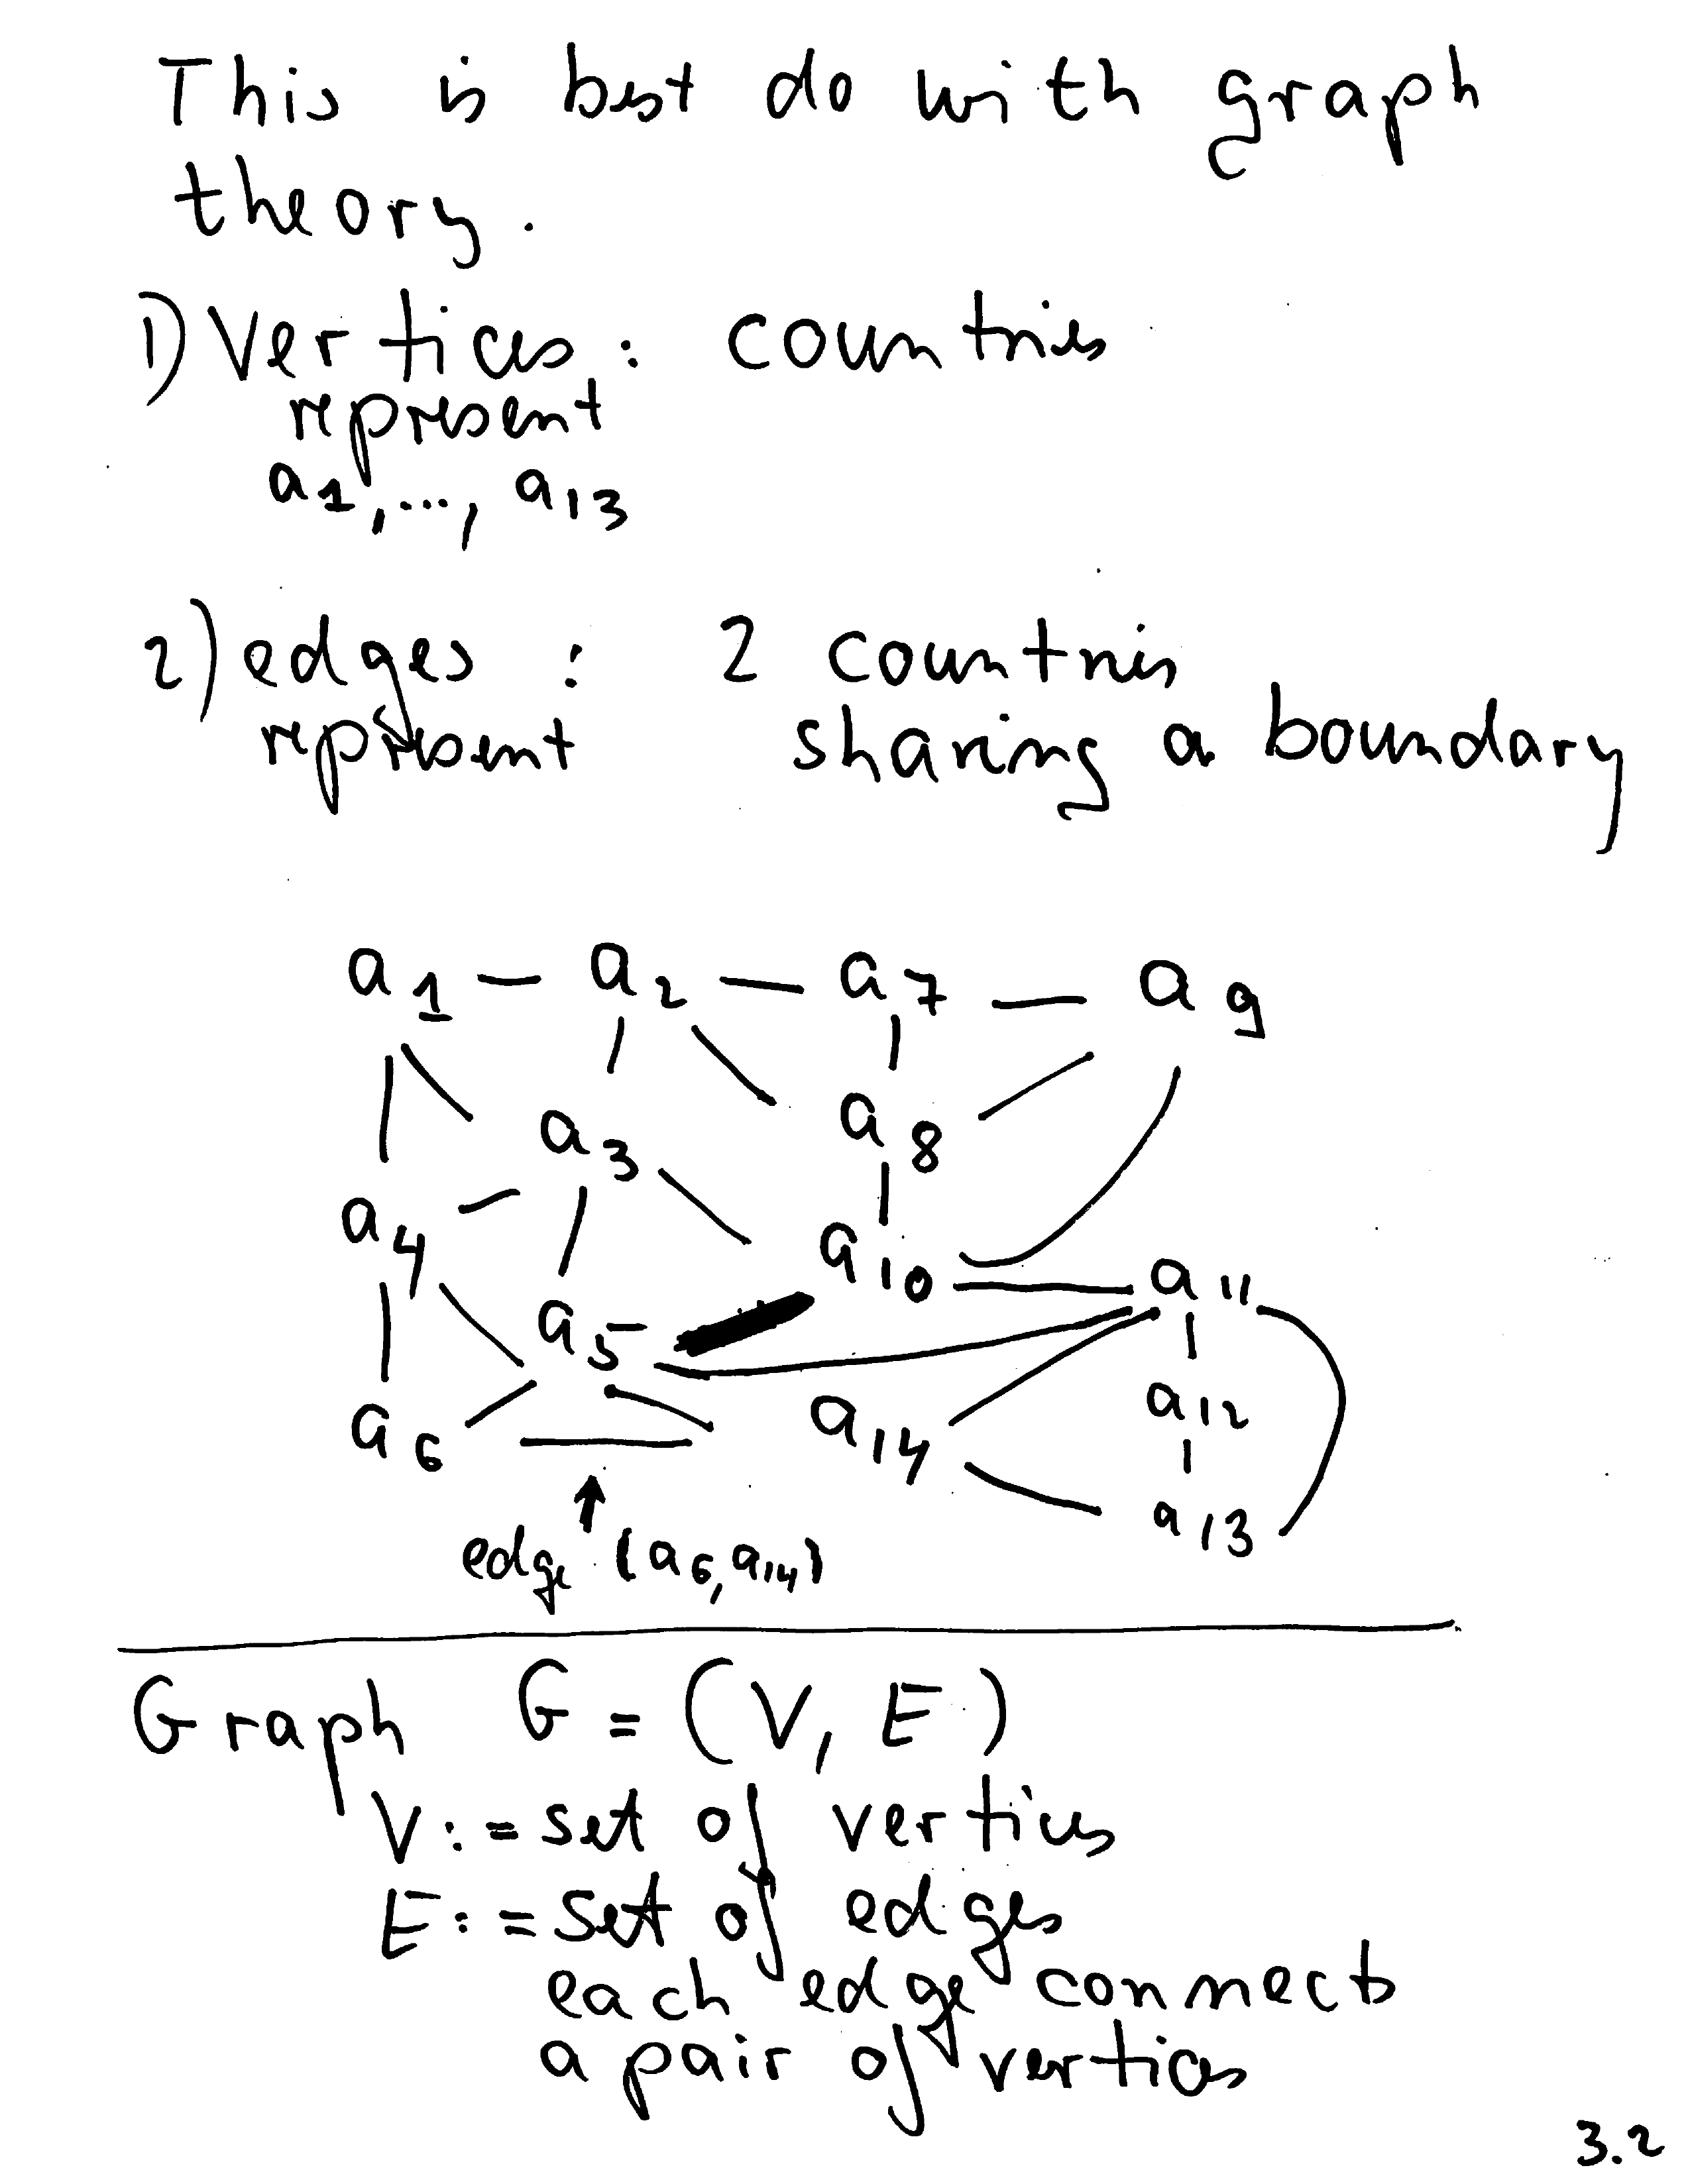 This is best do with graph
theory.
1) Vertices : countries
represent
a1, ..., a13
2) edges : 2 countries
represent sharing a boundary
a1 — a2 — a7 — a9
a3 a8
a4 a10
a5 a11
a6 a14 a12
a13
edge (a6, a14)
Graph G = (V, E)
V := set of vertices
E := set of edges
each edge connects
a pair of vertices
3.2